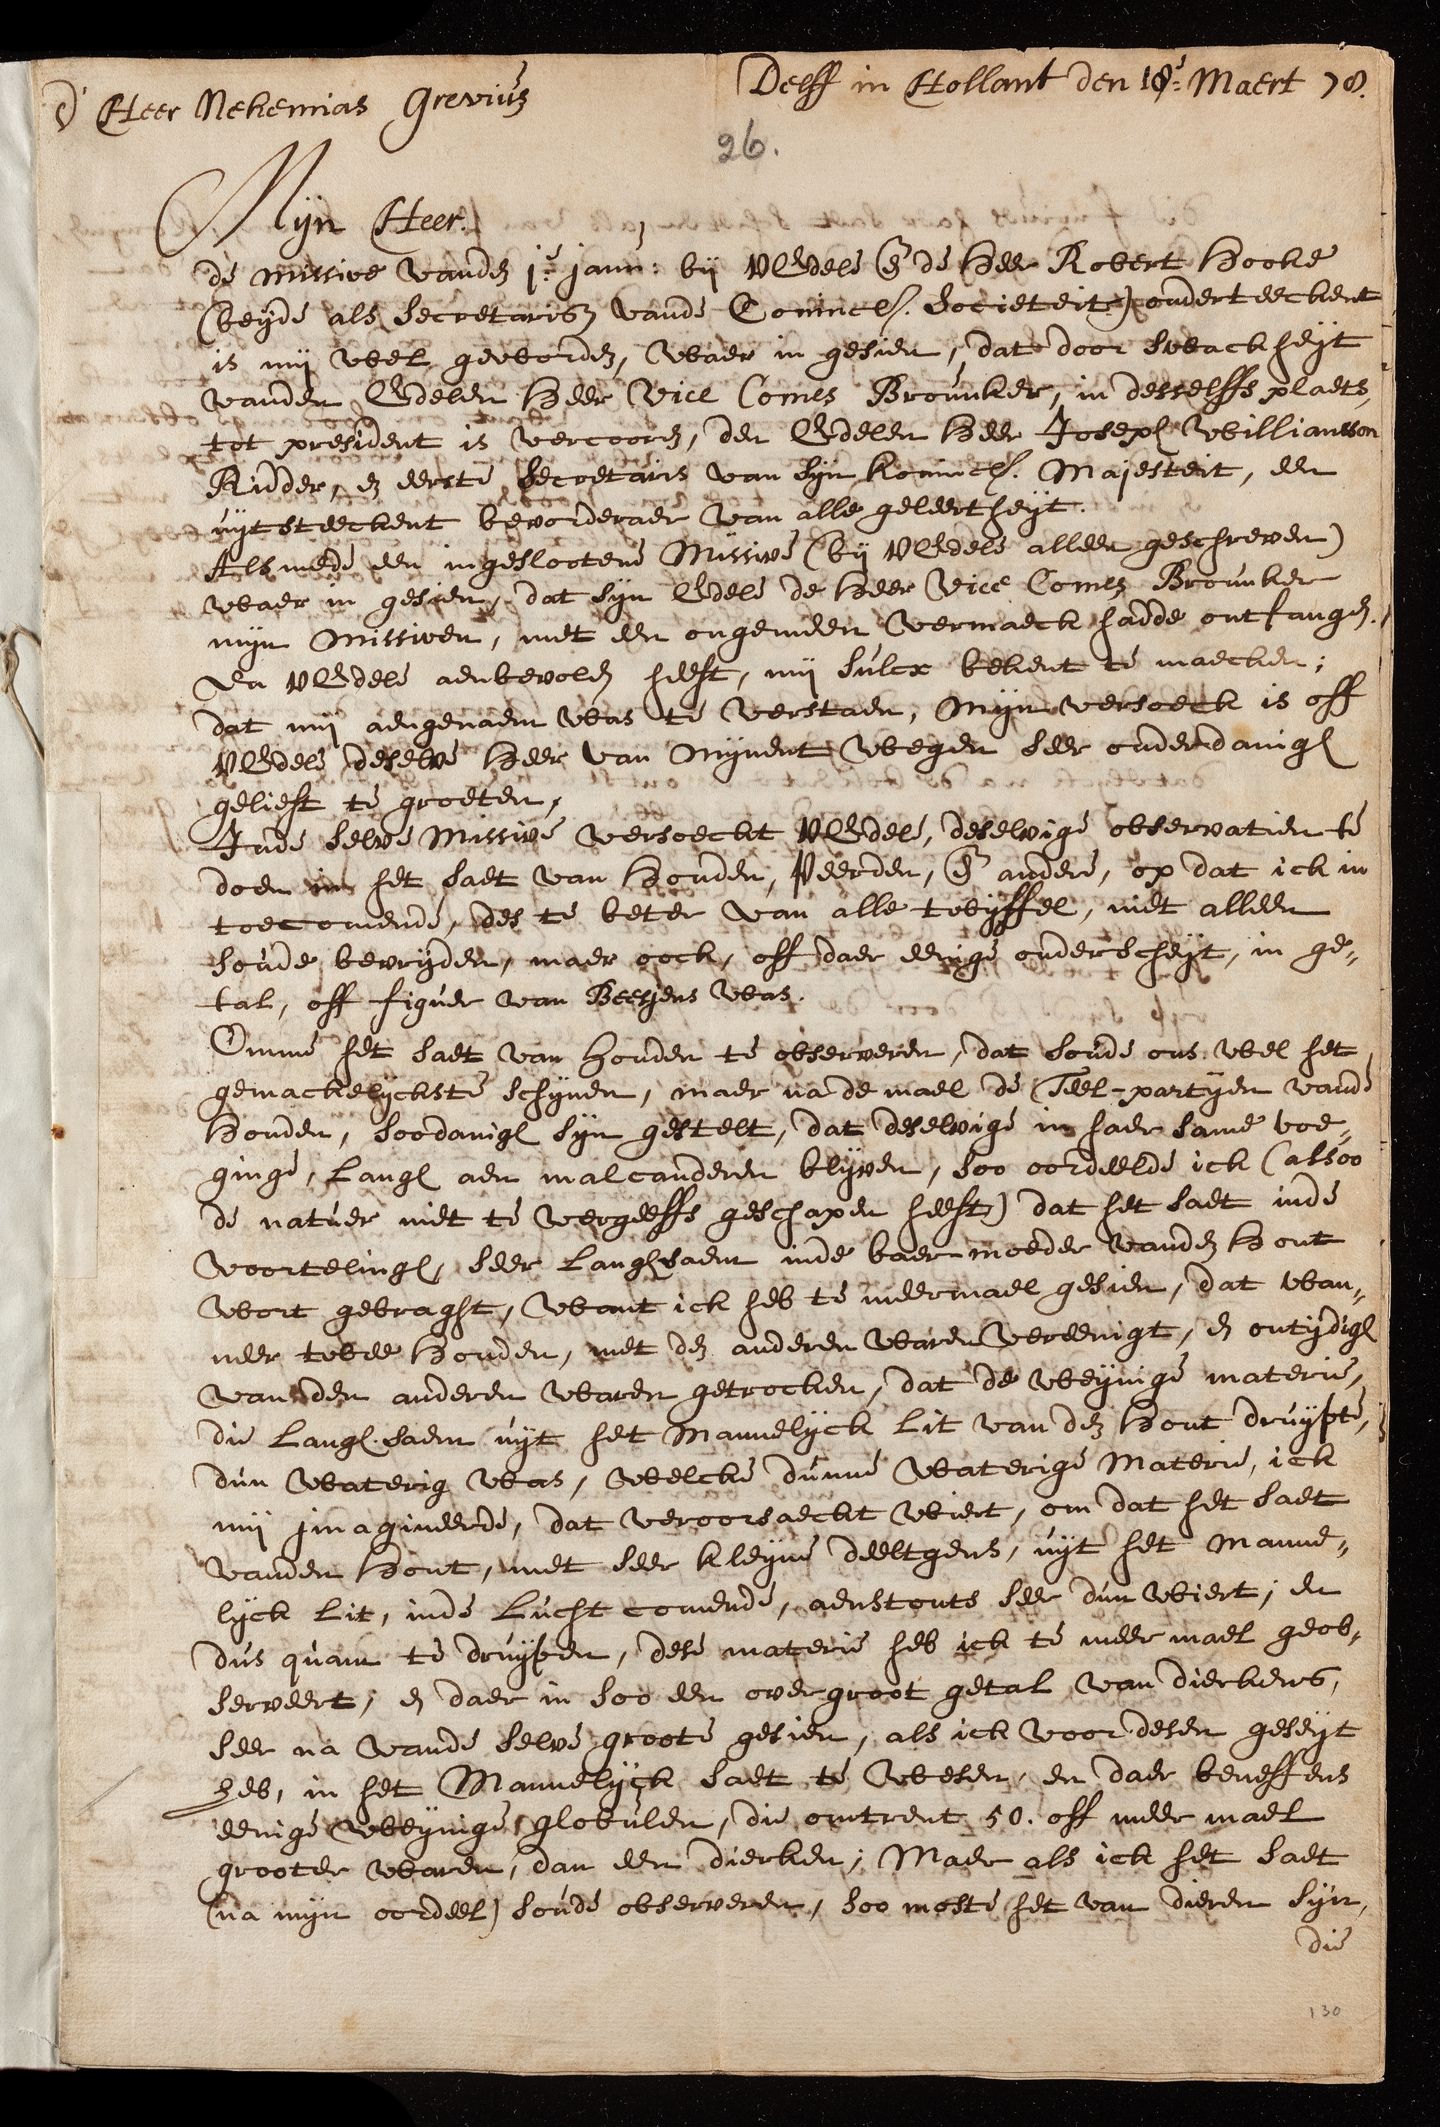 Delff in Hollant den 18e Maert 78.
d' Heer Nehemias Grevius
26.
Mijn Heer.
de missive vanden je janu: bij UEdele & de Heer Robert Hooke
(beyde als Secretarisen vande Conincl. Societeit) onderteeckent
is mij wel geworden, waer in gesien, dat door swackheijt
vanden Edelen Heer Vice Comes Brounker, in desselffs plaets,
tot president is vercooren, den Edelen Heer Joseph Williamson
Ridder, en eerste Secretaris van sijn konincl. Majesteit, een
uijtsteeckent bevorderaer van alle geleertheijt.
Als mede een ingeslootene Missive (bij UEdele alleen geschreven)
waer in gesien, dat sijn Edele de Heer Vice Comes Brounker
mijn missiven, met een ongemeen vermaeck hadde ontfangen.
En UEdele aenbevolen heeft, mij sulcx bekent te maecken;
dat mij aengenaem was te verstaen, Mijn versoeck is off
UEdele deselve Heer van mijnent wegen seer onderdanigl
gelieft te groeten,
Inde selve Missive versoeckt UEdele, deselvige observatien te
doen in het saet van Honden, Peerden, & andere, op dat ick in
toecomende, des te beter van alle twijffel, niet alleen
soude bevrijden, maer oock, off daer eenige onderscheijt, in ge„
tal, off figuer van Beesjens was.
Omme het saet van honden te observeren, dat soude ons wel het
gemackelijckste schijnen, maer na de mael de Teel-partijen vande
Honden, soodanigl sijn gestelt, dat deselvige in haer same voe„
ginge, Langl aen malcanderen blijven, soo oordeelde ick (alsoo
de natuer niet te vergeeffs geschapen heeft) dat het saet inde
voortelingl, seer Langhsaem inde baer-moeder vanden Hont
wort gebraght, want ick heb te meermael gesien, dat wan„
neer twee Honden, met den anderen waren vereenigt, en ontijdigl
van den anderen waren getrocken, dat de weijnige materie,
die Langl.saem uijt het Mannelijck Lit van den Hont druijpte,
dun waterig was, welcke dunne waterige Materie, ick
mij jmagineerde, dat veroorsaeckt wiert, om dat het saet
vanden Hont, met seer kleijne deeltgens, uijt het manne„
lijck Lit, inde Lucht comende, aenstonts seer dun wiert, en
dus quam te druijpen, dese materie heb ick te meer mael geob„
serveert, en daer in soo een over groot getal van dierkens,
seer na vande selve groote gesien, als ick voor desen geseijt
heb, in het Mannelijck saet te wesen, en daer beneffens
eenige weijnige globulen, die omtrent 50. off meer mael
grooter waren, dan een dierken; Maer als ick het saet
(na mijn oordeel) soude observeren, soo moste het van dieren sijn,
die
130